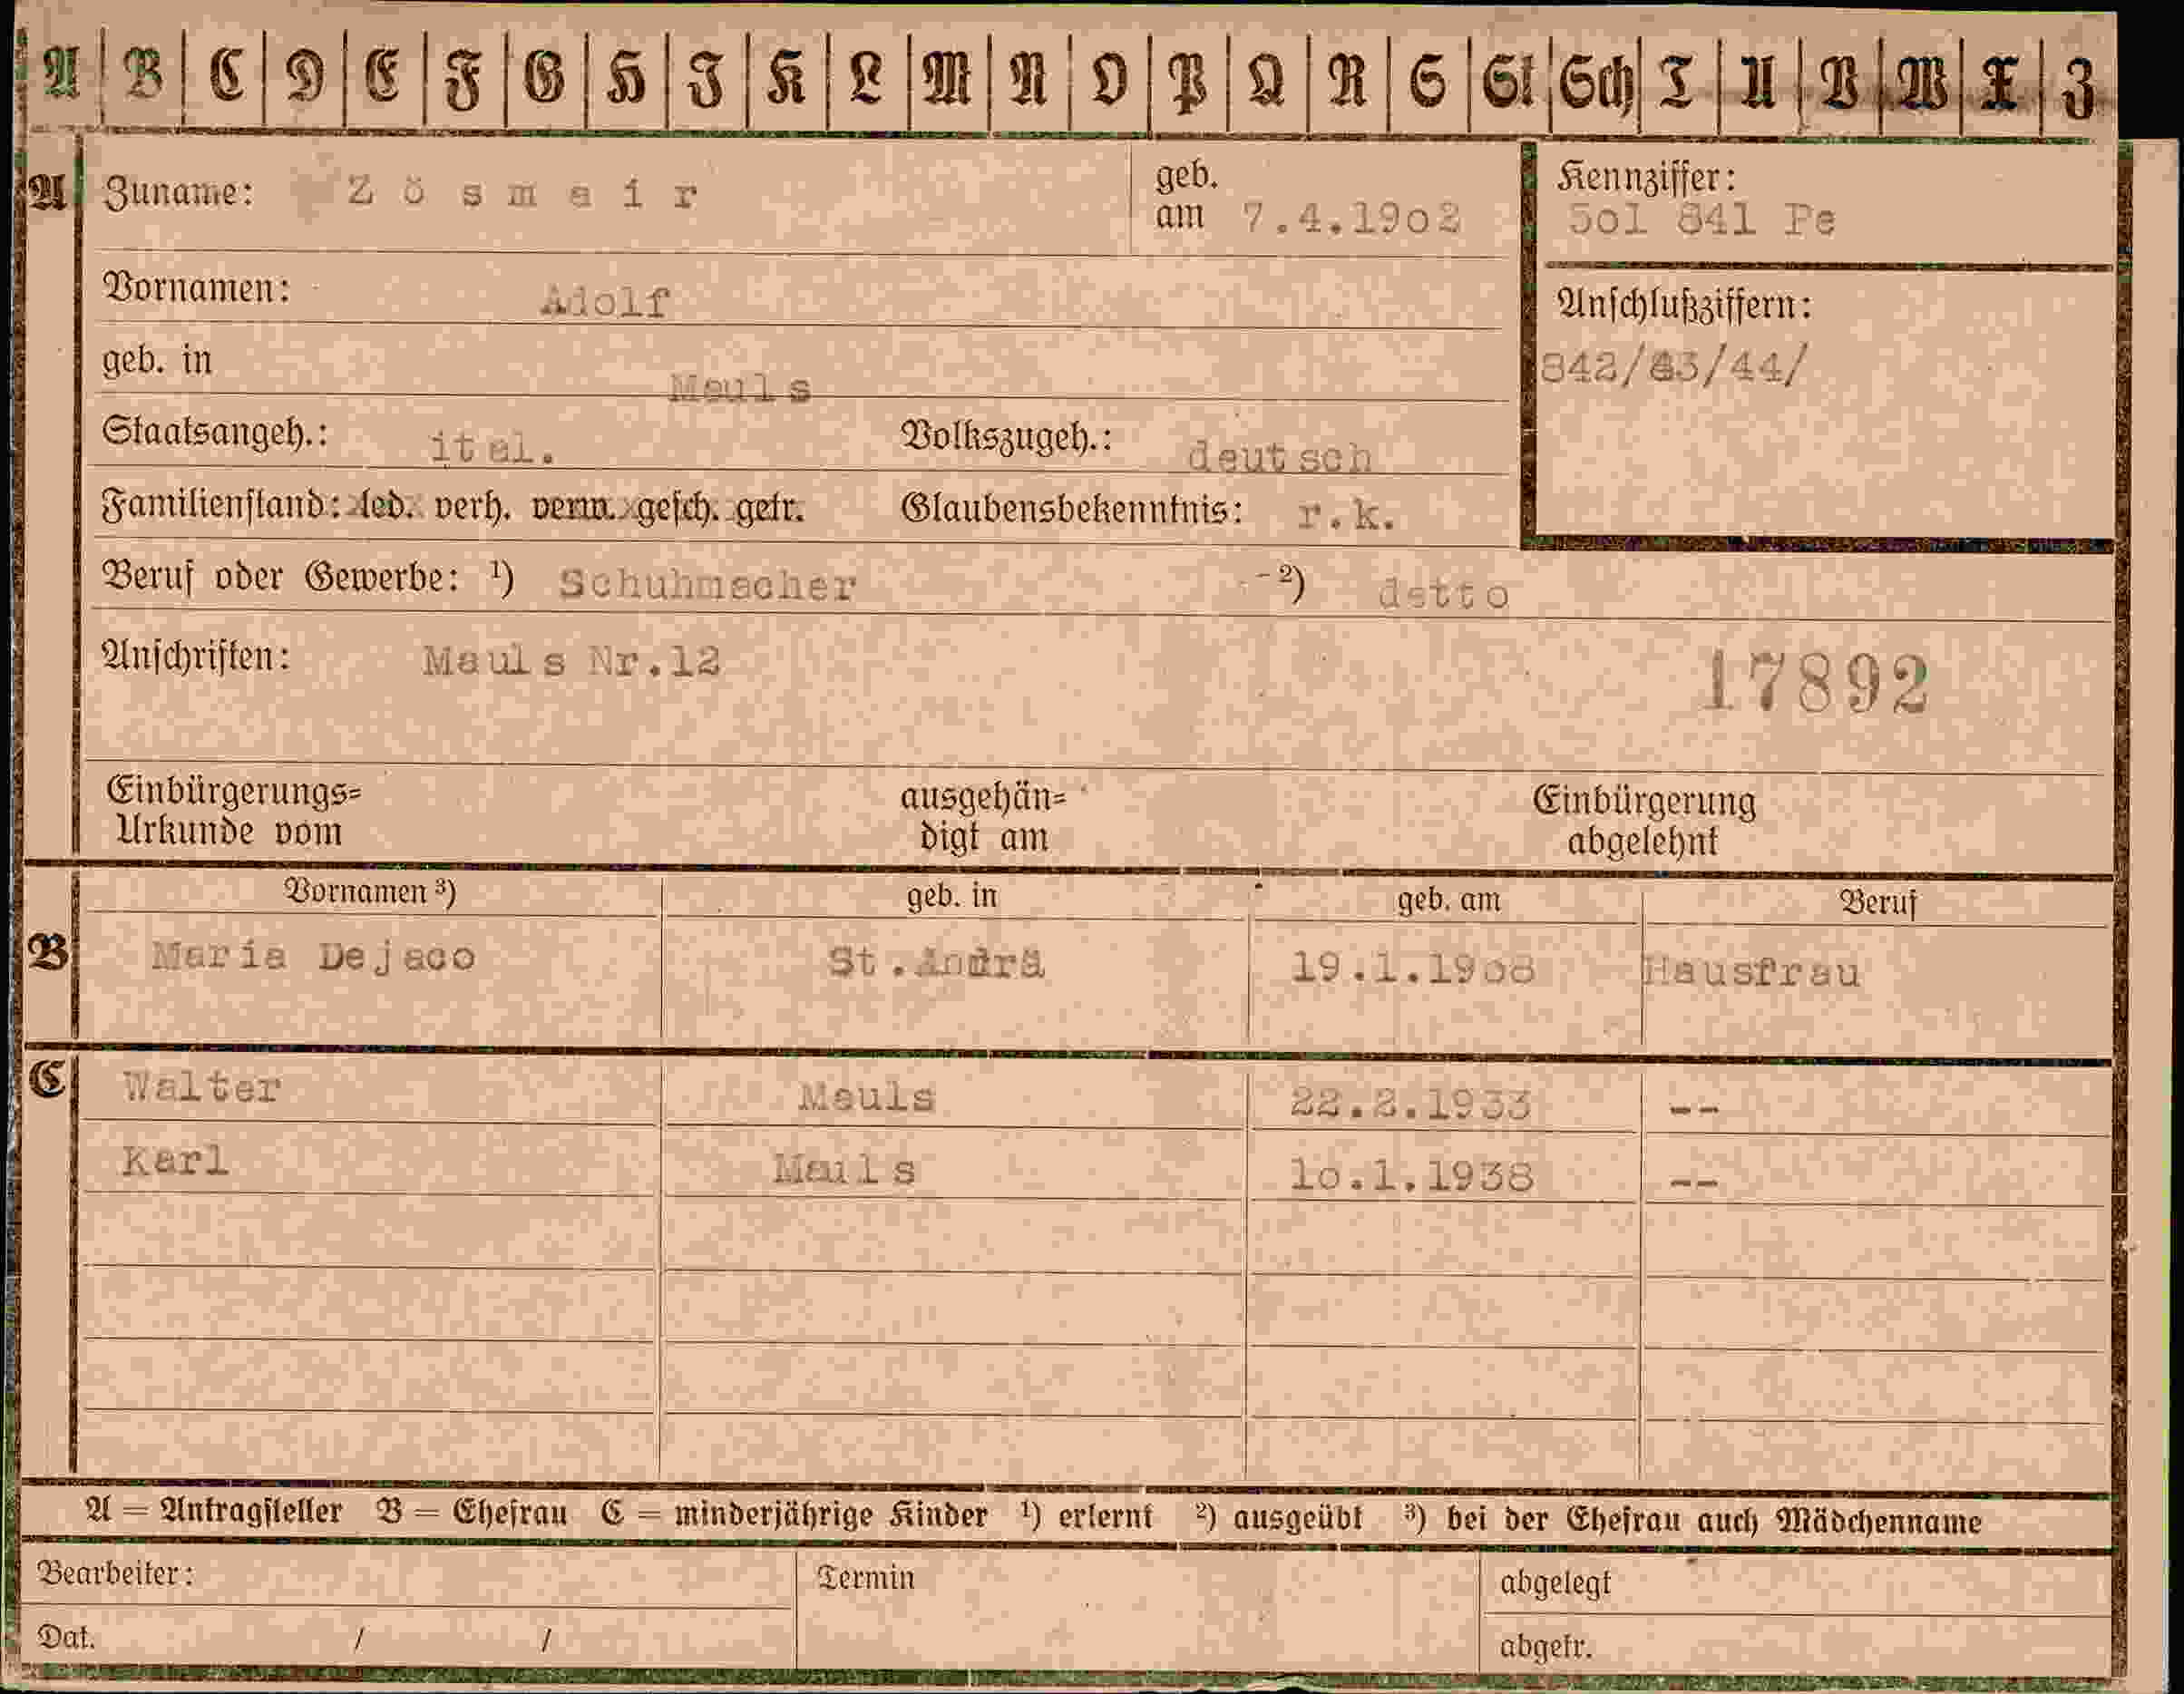 A B C D E F G H J K L M N O P Q R S St Sch T U V W X Z
A Zuname: Zösmair geb. am 7.4.19o2
Kennziffer: 5ol 841 Pe
Vornamen: Adolf
Anschlußziffern:
842/43/44/
geb. in Mauls
Staatsangeh.: ital. Volkszugeh.: deutsch
Familienstand: led. verh. verw. gesch. getr. Glaubensbekenntnis: r.k.
Beruf oder Gewerbe: ¹) Schuhmacher -²) detto
Anschriften: Mauls Nr.12
17892
Einbürgerungs= Urkunde vom ausgehän= digt am Einbürgerung abgelehnt
Vornamen ³) geb. in geb. am Beruf
B Maria Dejaco St.Andrä 19.1.19o8 Hausfrau
C Walter Mauls 22.2.1933 --
Karl Mauls lo.1.1938 --
A = Antragsteller B = Ehefrau C = minderjährige Kinder ¹) erlernt ²) ausgeübt ³) bei der Ehefrau auch Mädchenname
Bearbeiter: Termin abgelegt
Dat. / / abgetr.